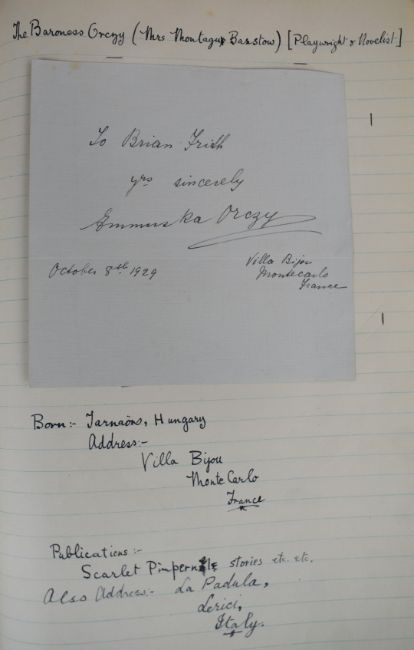 The Baroness Orczy (Mrs Montague Barstow) [Playwright & Novelist]
To Brian Frith
yrs sincerely
Emmuska Orczy
October 8th 1929
Villa Bijou
Montecarlo
France
Born:- Tarnaörs, Hungary
Address:-
Villa Bijou
Monte Carlo
France
Publications:-
Scarlet Pimpernel stories etc. etc.
Also Address:- La Padula,
Lerici,
Italy.